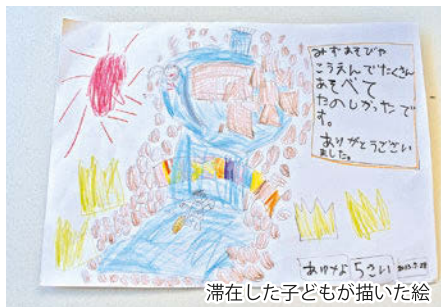 みずあそびや
こうえんでたくさん
あそべて
たのしかったで
す。
ありがとうござい
ました。
5さい
滞在した子どもが描いた絵